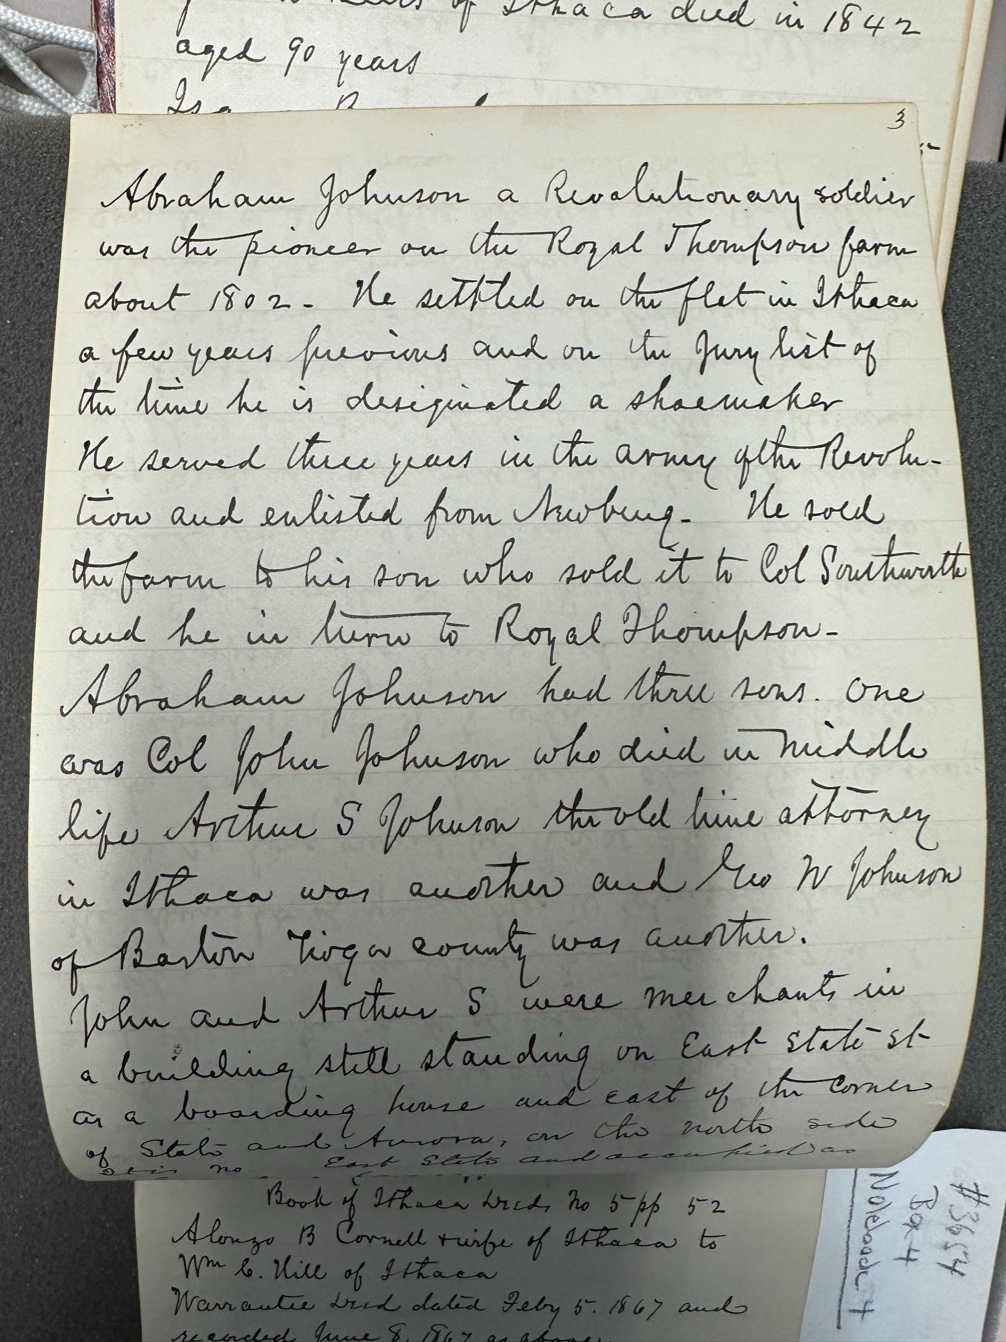 of Ithaca died in 1842
aged 90 years
3
Abraham Johnson a Revolutionary soldier
was the pioneer on the Royal Thompson farm
about 1802 - He settled on the flat in Ithaca
a few years previous and on the Jury list of
the time he is designated a shoemaker
He served three years in the army of the Revolu-
tion and enlisted from Newburg - He sold
the farm to his son who sold it to Col Southworth
and he in turn to Royal Thompson -
Abraham Johnson had three sons. One
was Col John Johnson who died in middle
life Arthur S Johnson the old time attorney
in Ithaca was another and Geo W Johnson
of Barton Tioga county was another.
John and Arthur S were merchants in
a building still standing on East State St
as a boarding house and east of the corner
of State and Aurora, on the north side
No East State and occupied as
Book of Ithaca Deeds No 5 pp 52
Alonzo B Cornell & wife of Ithaca to
Wm C. Hill of Ithaca
Warrantee Deed dated Feby 5. 1867 and
recorded June 8. 1867 as above
#3654
Box 4
Notebook 4